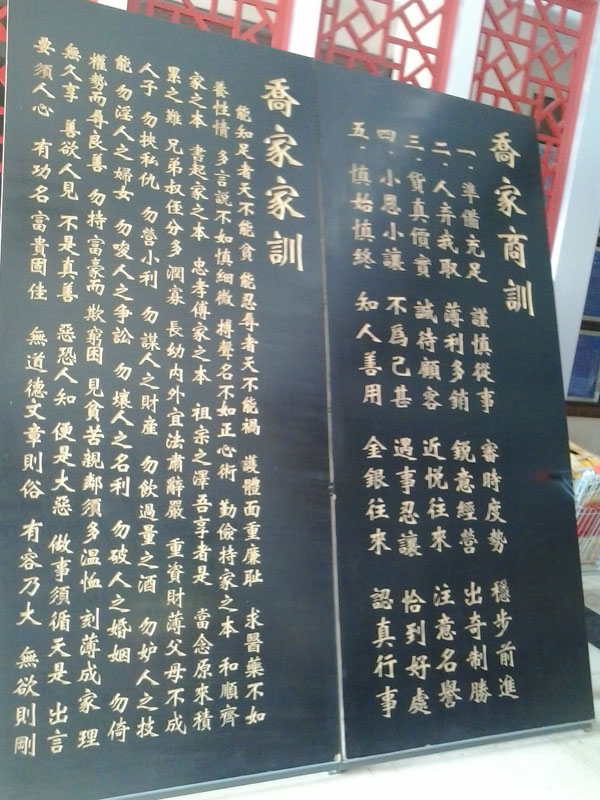 喬家商訓
一·準備充足 謹慎從事 審時度勢 穩步前進
二·人弃我取 薄利多銷 銳意經營 出奇制勝
三·貨真價實 誠待顧客 近悦往來 注意名譽
四·小恩小讓 不爲己甚 遇事忍讓 恰到好處
五·慎始慎終 知人善用 金銀往來 認真行事
喬家家訓
能知足者天不能貧 能忍辱者天不能禍 護體面重廉耻 求醫藥不如
養性情 多言説不如慎細微 搏聲名不如正心術 勤儉持家之本 和順齊
家之本 書起家之本 忠孝傳家之本 祖宗之澤吾享者是 當念原來積
累之難 兄弟叔侄分多潤寡 長幼内外宜法肅辭嚴 重資財薄父母不成
人子 勿挾私仇 勿營小利 勿謀人之財産 勿飲過量之酒 勿妒人之技
能 勿淫人之婦女 勿唆人之争訟 勿壞人之名利 勿破人之婚姻 勿倚
權勢而辱良善 勿持富豪而欺窮困 見貧苦親鄰須多温恤 刻薄成家理
無久享 善欲人見 不是真善 惡恐人知 便是大惡 做事須循天是 出言
要須人心 有功名富貴固佳 無道德文章則俗 有容乃大 無欲則剛